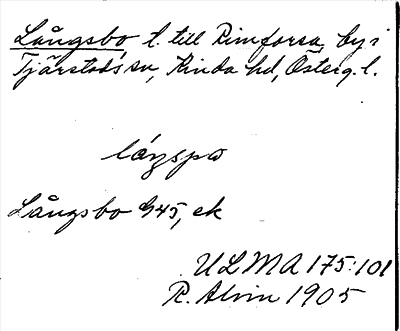 Långsbo, t. till Rimforsa, by i
Tjärstads sn, Kinda hd, Österg. l.
Långsbo G45, ek
ULMA 175:101
R. Alvin 1905